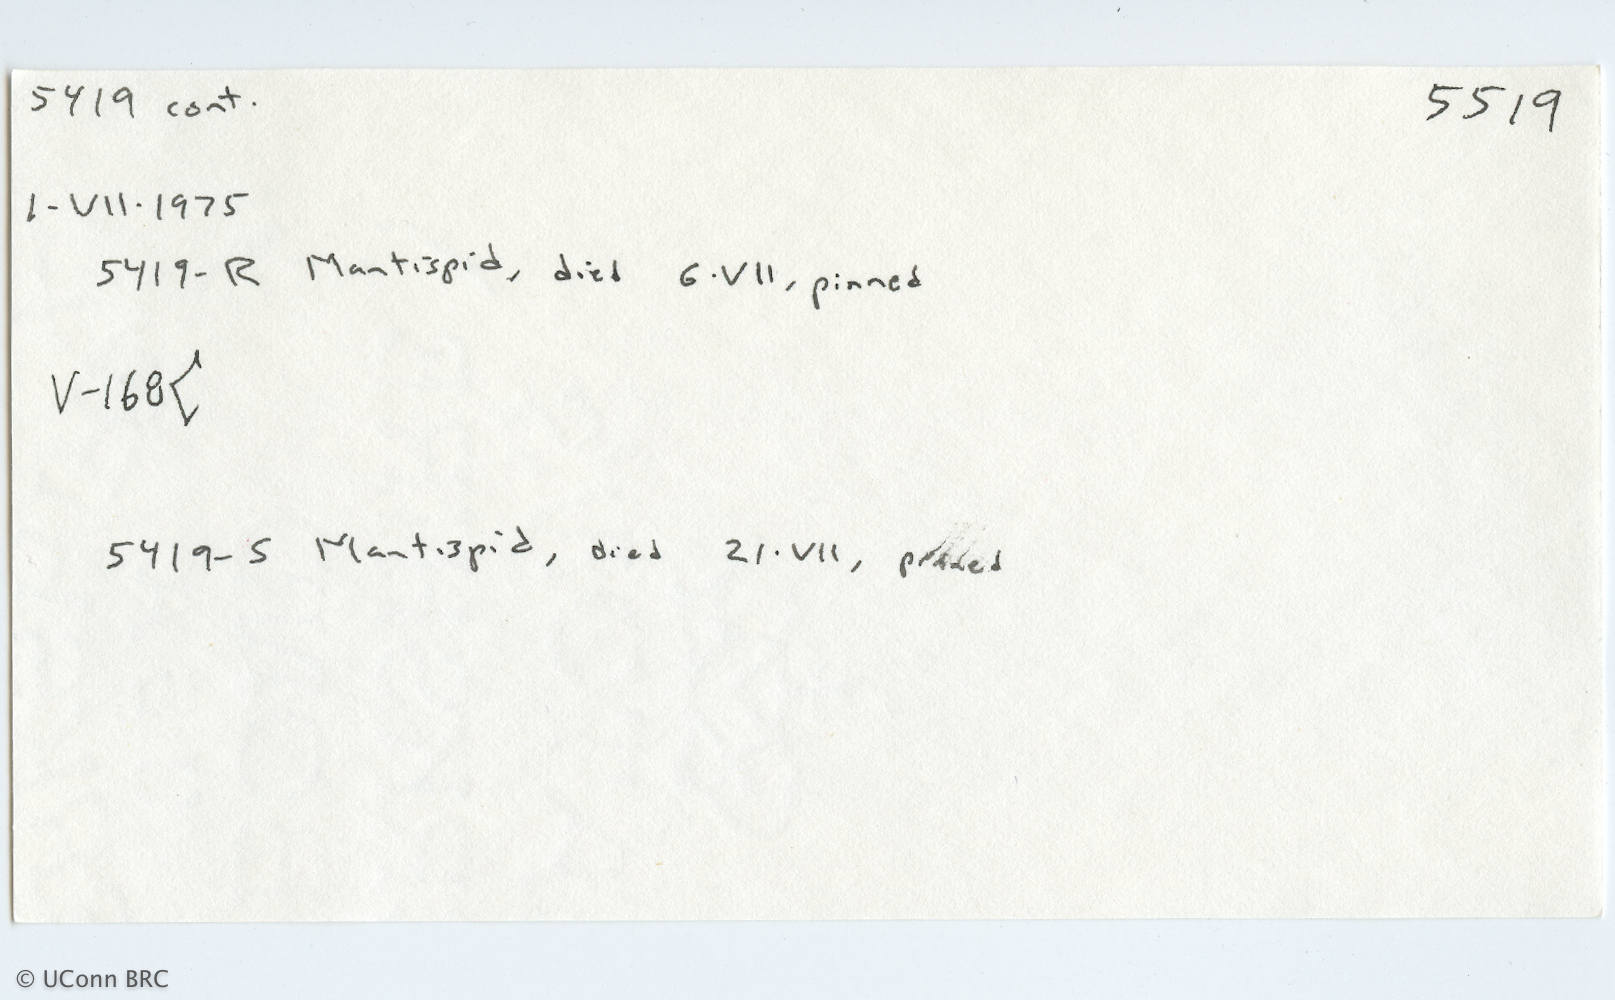 5419 cont. 5519
1-VII.1975
5419-R Mantispid, died 6.VII, pinned
V-168{
5419-S Mantispid, died 21.VII, pinned
© UConn BRC